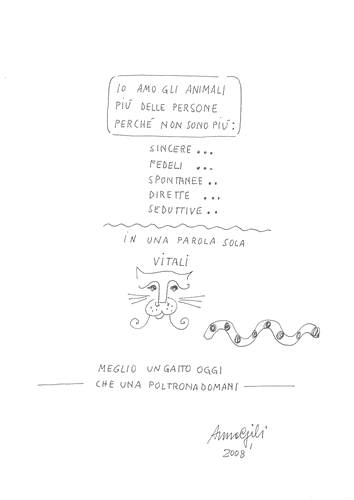 IO AMO GLI ANIMALI
PIÚ DELLE PERSONE
PERCHÉ NON SONO PIÚ:
SINCERE ...
FEDELI ...
SPONTANEE ..
DIRETTE ...
SEDUTTIVE ..
IN UNA PAROLA SOLA
VITALI
MEGLIO UN GATTO OGGI
CHE UNA POLTRONA DOMANI
Anna Gili
2008